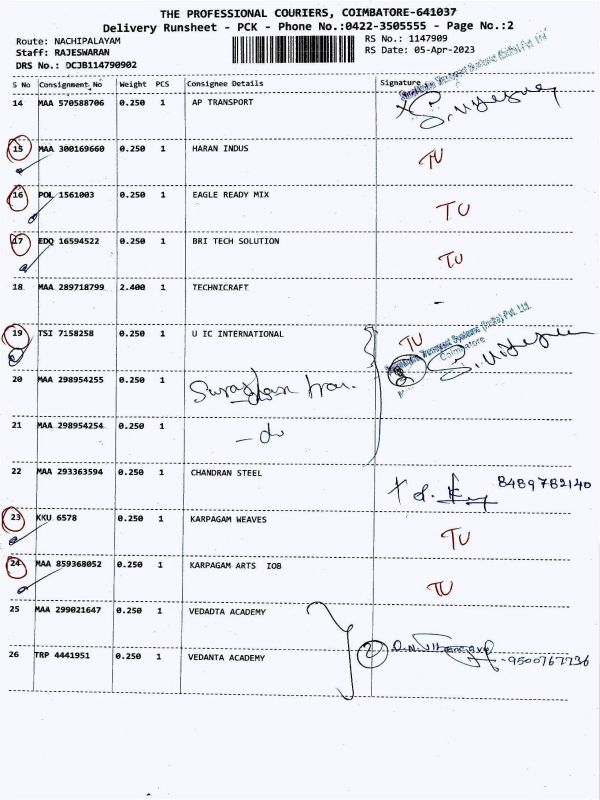 THE PROFESSIONAL COURIERS, COIMBATORE-641037
Delivery Runsheet - PCK - Phone No.:0422-3505555 - Page No.:2
Route: NACHIPALAYAM RS No.: 1147909
Staff: RAJESWARAN RS Date: 05-Apr-2023
DRS No.: DCJB114790902
S No Consignment No Weight PCS Consignee Details Signature
14 MAA 570588706 0.250 1 AP TRANSPORT
15 MAA 300169660 0.250 1 HARAN INDUS TU
16 POL 1561003 0.250 1 EAGLE READY MIX TU
17 EDQ 16594522 0.250 1 BRI TECH SOLUTION TU
18 MAA 289718799 2.400 1 TECHNICRAFT -
19 TSI 7158258 0.250 1 U IC INTERNATIONAL TU
Systems (India) Pvt. Ltd.
Coimbatore
20 MAA 298954255 0.250 1
21 MAA 298954254 0.250 1 - do
22 MAA 293363594 0.250 1 CHANDRAN STEEL 8489782140
23 KKU 6578 0.250 1 KARPAGAM WEAVES TU
24 MAA 859368052 0.250 1 KARPAGAM ARTS IOB TU
25 MAA 299021647 0.250 1 VEDADTA ACADEMY
26 TRP 4441951 0.250 1 VEDANTA ACADEMY 2 -9500767736